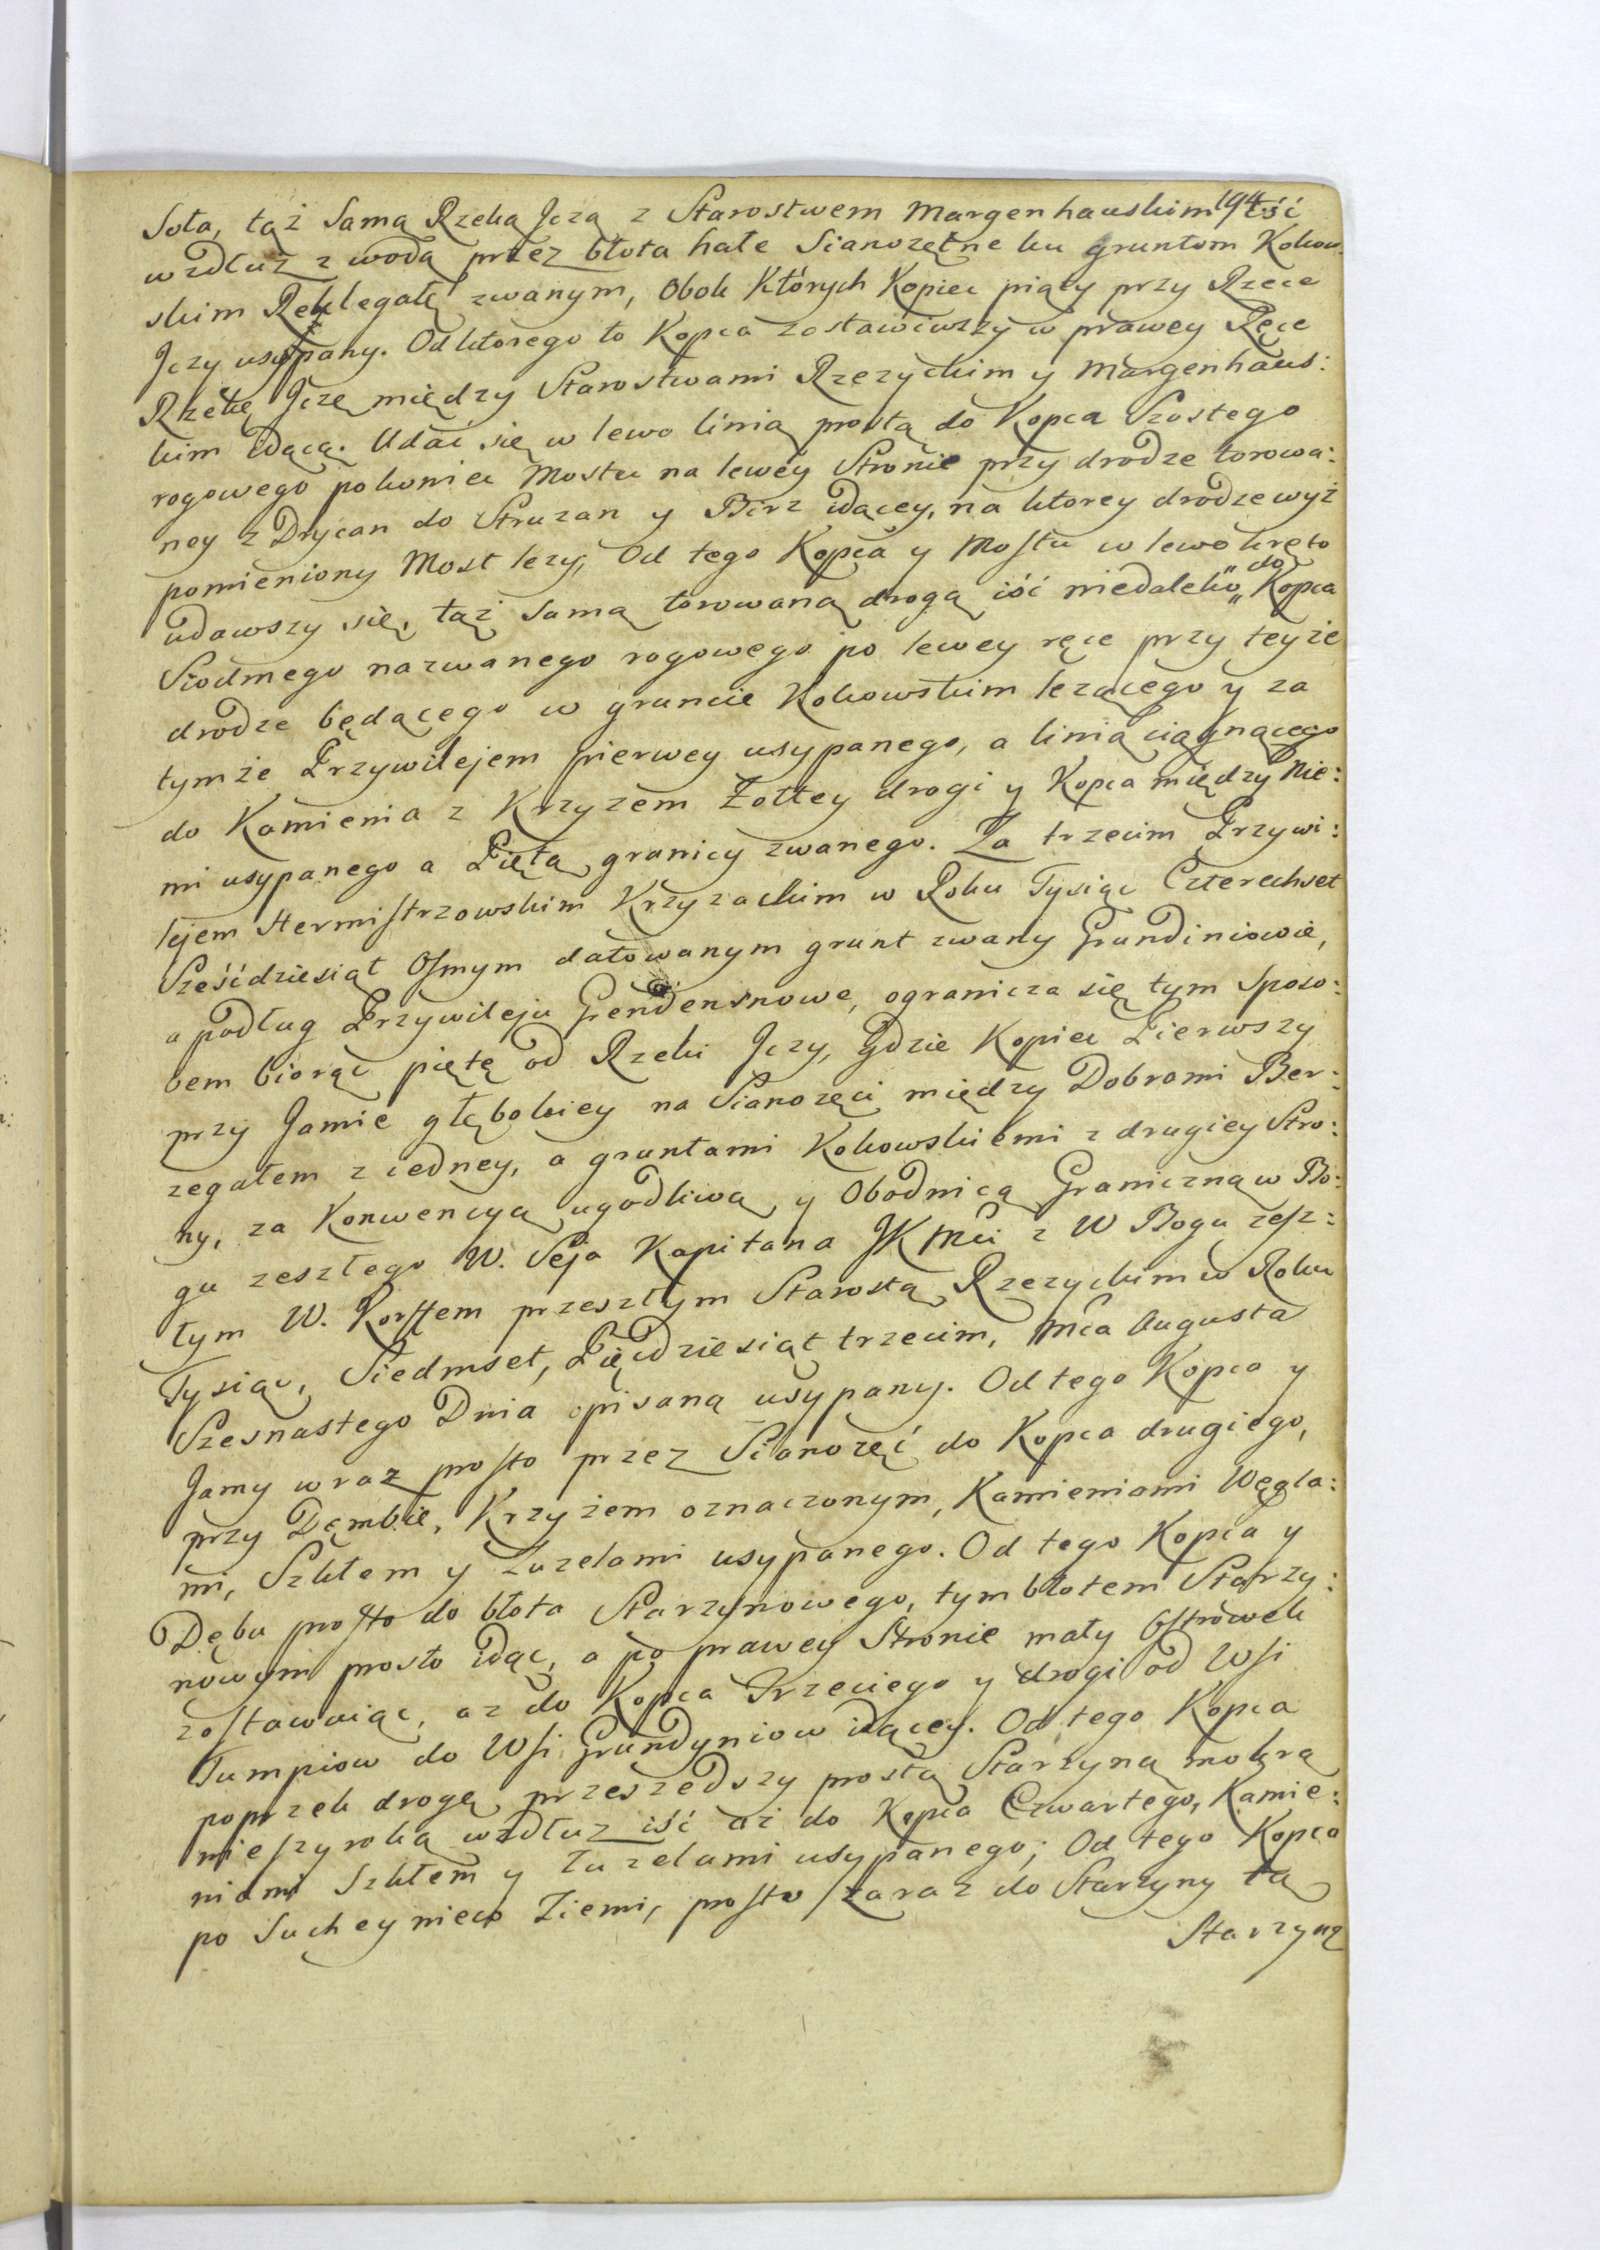 194
Soła, tąż Samą Rzeką Jczą z Starostwem Margenhauskim iść
wzdłuż z wodą przez błota hałe Sianozętne ku gruntom Kokow-
skim Reklegałę zwanym, Obok Których Kopiec piąty przy Rzece
Jczy usypany. Od ktorego to Kopca zostawiwszy w prawey Ręce
Rzekę Jczę między Starostwami Rzezyckim y Margenhaus:
kim idącą. Udać się w lewo linią prostą do Kopca Szostego
rogowego pokoniec Mostu na lewey Stronie przy drodze torowa:
ney z Drycan do Struzan y Birz idącey, na ktorey drodze wyż
pomieniony Most lezy, Od tego Kopca y Mostu w lewo kręto
udawszy się, tąż samą torowaną drogą iść niedaleko „do„ Kopca
Siodmego nazwanego rogowego po lewey ręce przy teyże
drodze będącego w gruncie Kokowskim lezącego y za
tymże Przywilejem pierwey usypanego, a linią ciągnącego
do Kamienia z Krzyzem Żołtey drogi y Kopca między Nie:
mi usypanego a Piętą granicy zwanego. Za trzecim Przywi:
lejem Hermistrzowskim Krzyzackim w Roku Tysiąc Czterechset
Sześćdziesiąt Osmym datowanym grunt zwany Grundiniowie,
a podług Przywileju Grendensnowe, ogranicza się tym sposo:
bem biorąc piętę od Rzeki Jczy, gdzie Kopiec Pierwszy
przy Jamie głębokiey na Sianozęci między Dobrami Ber:
zegałem z iedney, a gruntami Kokowskiemi z drugiey Stro:
ny, za Konwencyą ugodliwą y Obodnicą Graniczną w Bo:
gu zeszłego W. Seja Kapitana JK Mci z W Bogu zesz:
łym W. Korffem przeszłym Starostą Rzezyckim w Roku
Tysiąc, Siedmset, Pięcdziesiąt trzecim, Mca Augusta
Szesnastego Dnia opisaną usypany. Od tego Kopca y
Jamy wraz prosto przez Sianozęć do Kopca drugiego,
przy Dęmbie, Krzyżem oznaczonym, Kamieniami Węgla:
mi, Szkłem y Zuzelami usypanego. Od tego Kopca y
Dębu prosto do błota Starzynowego, tym błotem Starzy:
nowym prosto idąc, a po prawey Stronie mały Ostrowek
zostawuiąc, az do Kopca Trzeciego y drogi od Wsi
Tumpiow do Wsi Grundyniow idącey. Od tego Kopca
poprzek drogę przeszedszy prostą Starzyną mokrą
nieszyroką wzdłuz iść aż do Kopca Czwartego, Kamie:
niami Szkłem y Zuzelami usypanego; Od tego Kopca
po Suchey nieco Ziemi, prosto zaraz do Starzyny tą
Starzyną